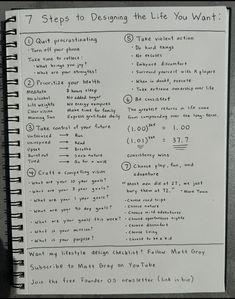 7 Steps to Designing the Life You Want:
① Quit procrastinating
- Turn off your phone
Take time to reflect:
- What brings you joy?
- What are your strengths?
② Prioritize your health
Meditate 8 hours sleep
No alcohol No added sugar
Lift weights No energy vampires
Clear vision Make time for family
Morning Sun Express gratitude daily
③ Take control of your future
Unfocused → Run
Uninspired → Read
Upset → Breathe
Burnt out → Save nature
Tired → Go for a walk
④ Craft a compelling vision
- What are your 10 year goals?
- What are your 3 year goals?
- What are your 1 year goals?
- What are your 90 day goals?
- What are your goals this week?
- What is your mission?
- What is your purpose?
⑤ Take violent action
- Do hard things
- No excuses
- Embrace discomfort
- Surround yourself with A players
- When in doubt, execute
- Take extreme ownership over life
⑥ Be consistent
The greatest returns in life come
from compounding over the long term.
(1.00)³⁶⁵ = 1.00
(1.01)³⁶⁵ = 37.7
consistency wins
⑦ Choose play, fun, and
adventure
"Most men die at 27, we just
bury them at 72." - Mark Twain
- Choose road trips
- Choose nature
- Choose wild adventures
- Choose spontaneous nights
- Choose discomfort
- Choose living
- Choose to be a kid
Want my lifestyle design checklist? Follow Matt Gray
Subscribe to Matt Gray on YouTube
Join the free Founder OS newsletter (link in bio)